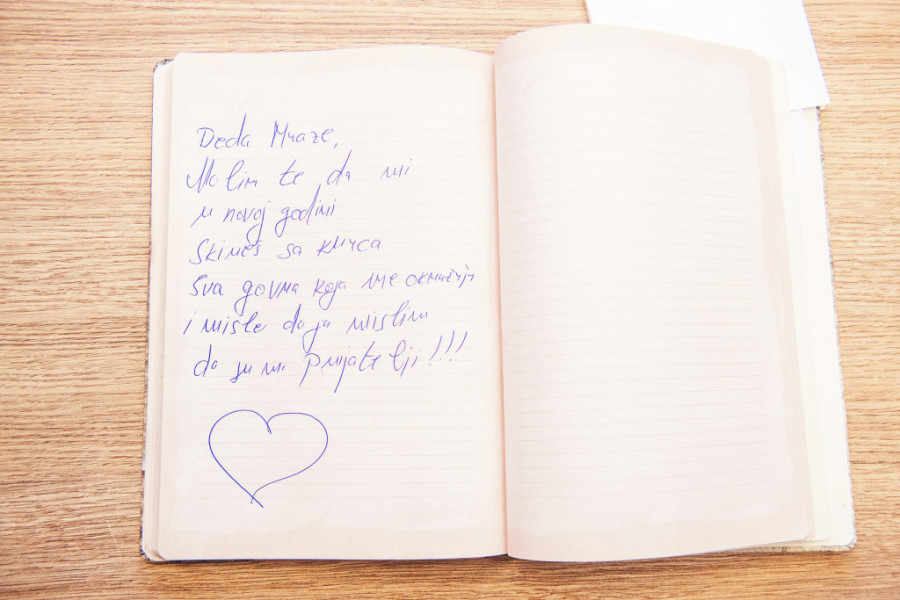 Deda Mraze,
Molim te da mi
u novoj godini
Skineš sa kurca
sva govna koja me okružuju
i misle da ja mislim
da su mi prijatelji!!!